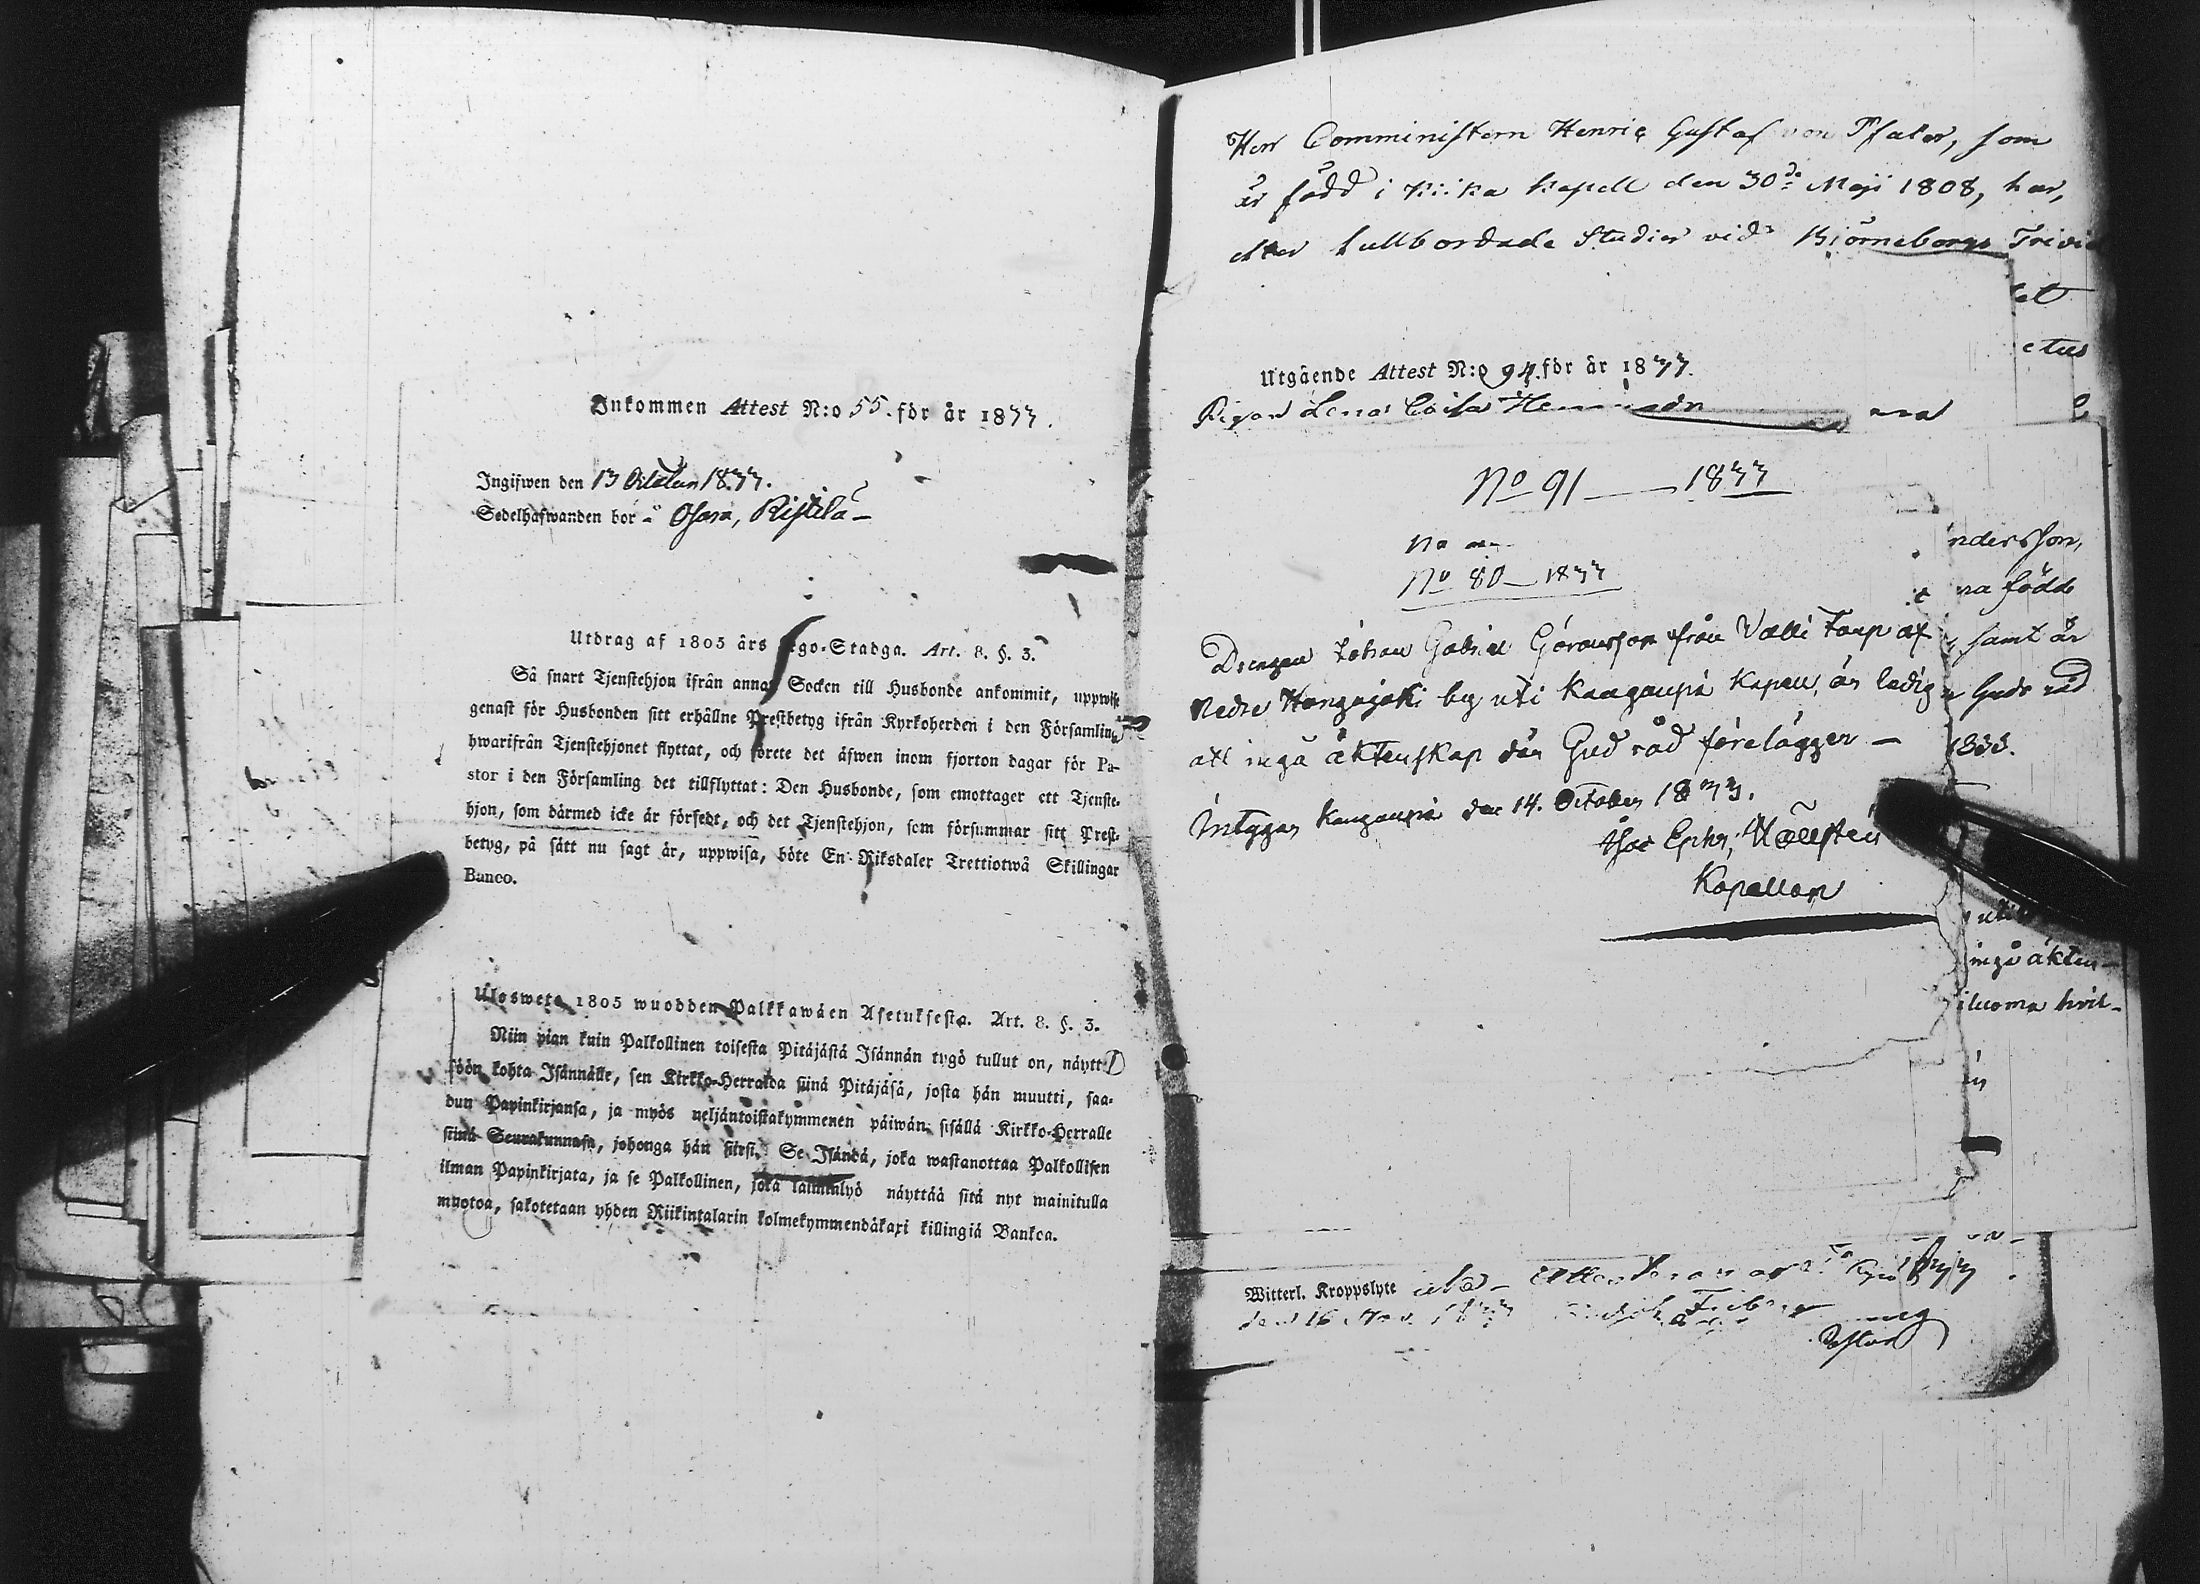 Inkommen Attest N:o 55. för år 1833.
Ingifwen den 13 October 1833.
Sedelhafwanden bor å Osara, Ristilä
Utdrag af 1805 års Lego-Stadga. Art. 8. §. 3.
Så snart Tjenstehjon ifrån annan Socken till Husbonde ankommit, uppwise
genast för Husbonden sitt erhållne Prestbetyg ifrån Kyrkoherden i den Församling
hwarifrån Tjenstehjonet flyttat, och förete det äfwen inom fjorton dagar för Pa-
stor i den Församling det tillflyttat: Den Husbonde, som emottager ett Tjenste-
hjon, som därmed icke är försedt, och det Tjenstehjon, som försummar sitt Prest-
betyg, på sätt nu sagt är, uppwisa, böte En Riksdaler Trettiotwå Skillingar
Banco.
Uloswete 1805 wuodden Palkkawäen Asetuksesta. Art. 8. §. 3.
Niin pian kuin Palkollinen toisesta Pitäjästä Isännän tygö tullut on, näyttä-
köön kohta Isännälle, sen Kirkko-Herralda siinä Pitäjäsä, josta hän muutti, saa-
dun Papinkirjansa, ja myös neljäntoistakymmenen päiwän sisällä Kirkko-Herralle
siinä Seurakunnasa, johonga hän siirsi. Se Isändä, joka wastanottaa Palkollisen
ilman Papinkirjata, ja se Palkollinen, joka laiminlyö näyttää sitä nyt mainitulla
muotoa, sakotetaan yhden Riikintalarin kolmekymmendäkaxi killingiä Bankoa.
Herr Comministern Henric Gustaf von Pfaler, som
är född i Kiika Kapell den 30de Maji 1808, har,
efter fullbordade Studier vid Björneborgs Trivia
et
ctus
Utgående Attest N:o 94. för år 1833.
Pigan Lena Caisa
No 91 — 1833
No 80 — 1833
ndersson,
na födde
samt är
Guds råd
1833.
Drengen Johan Gabriel Göransson från Välli Torp af
Nedre Honganjoki by uti Kangaspä Kapell, är ledig
att ingå äktenskap där Gud råd förelägger —
Intygar Kangaspä den 14. October 1833.
Isac Ephr. Hällsten
Kapellan
ingå äkten-
iluoma hvil-
Witterl. Kroppslyte
den 16 Nov. 1833
Pastor